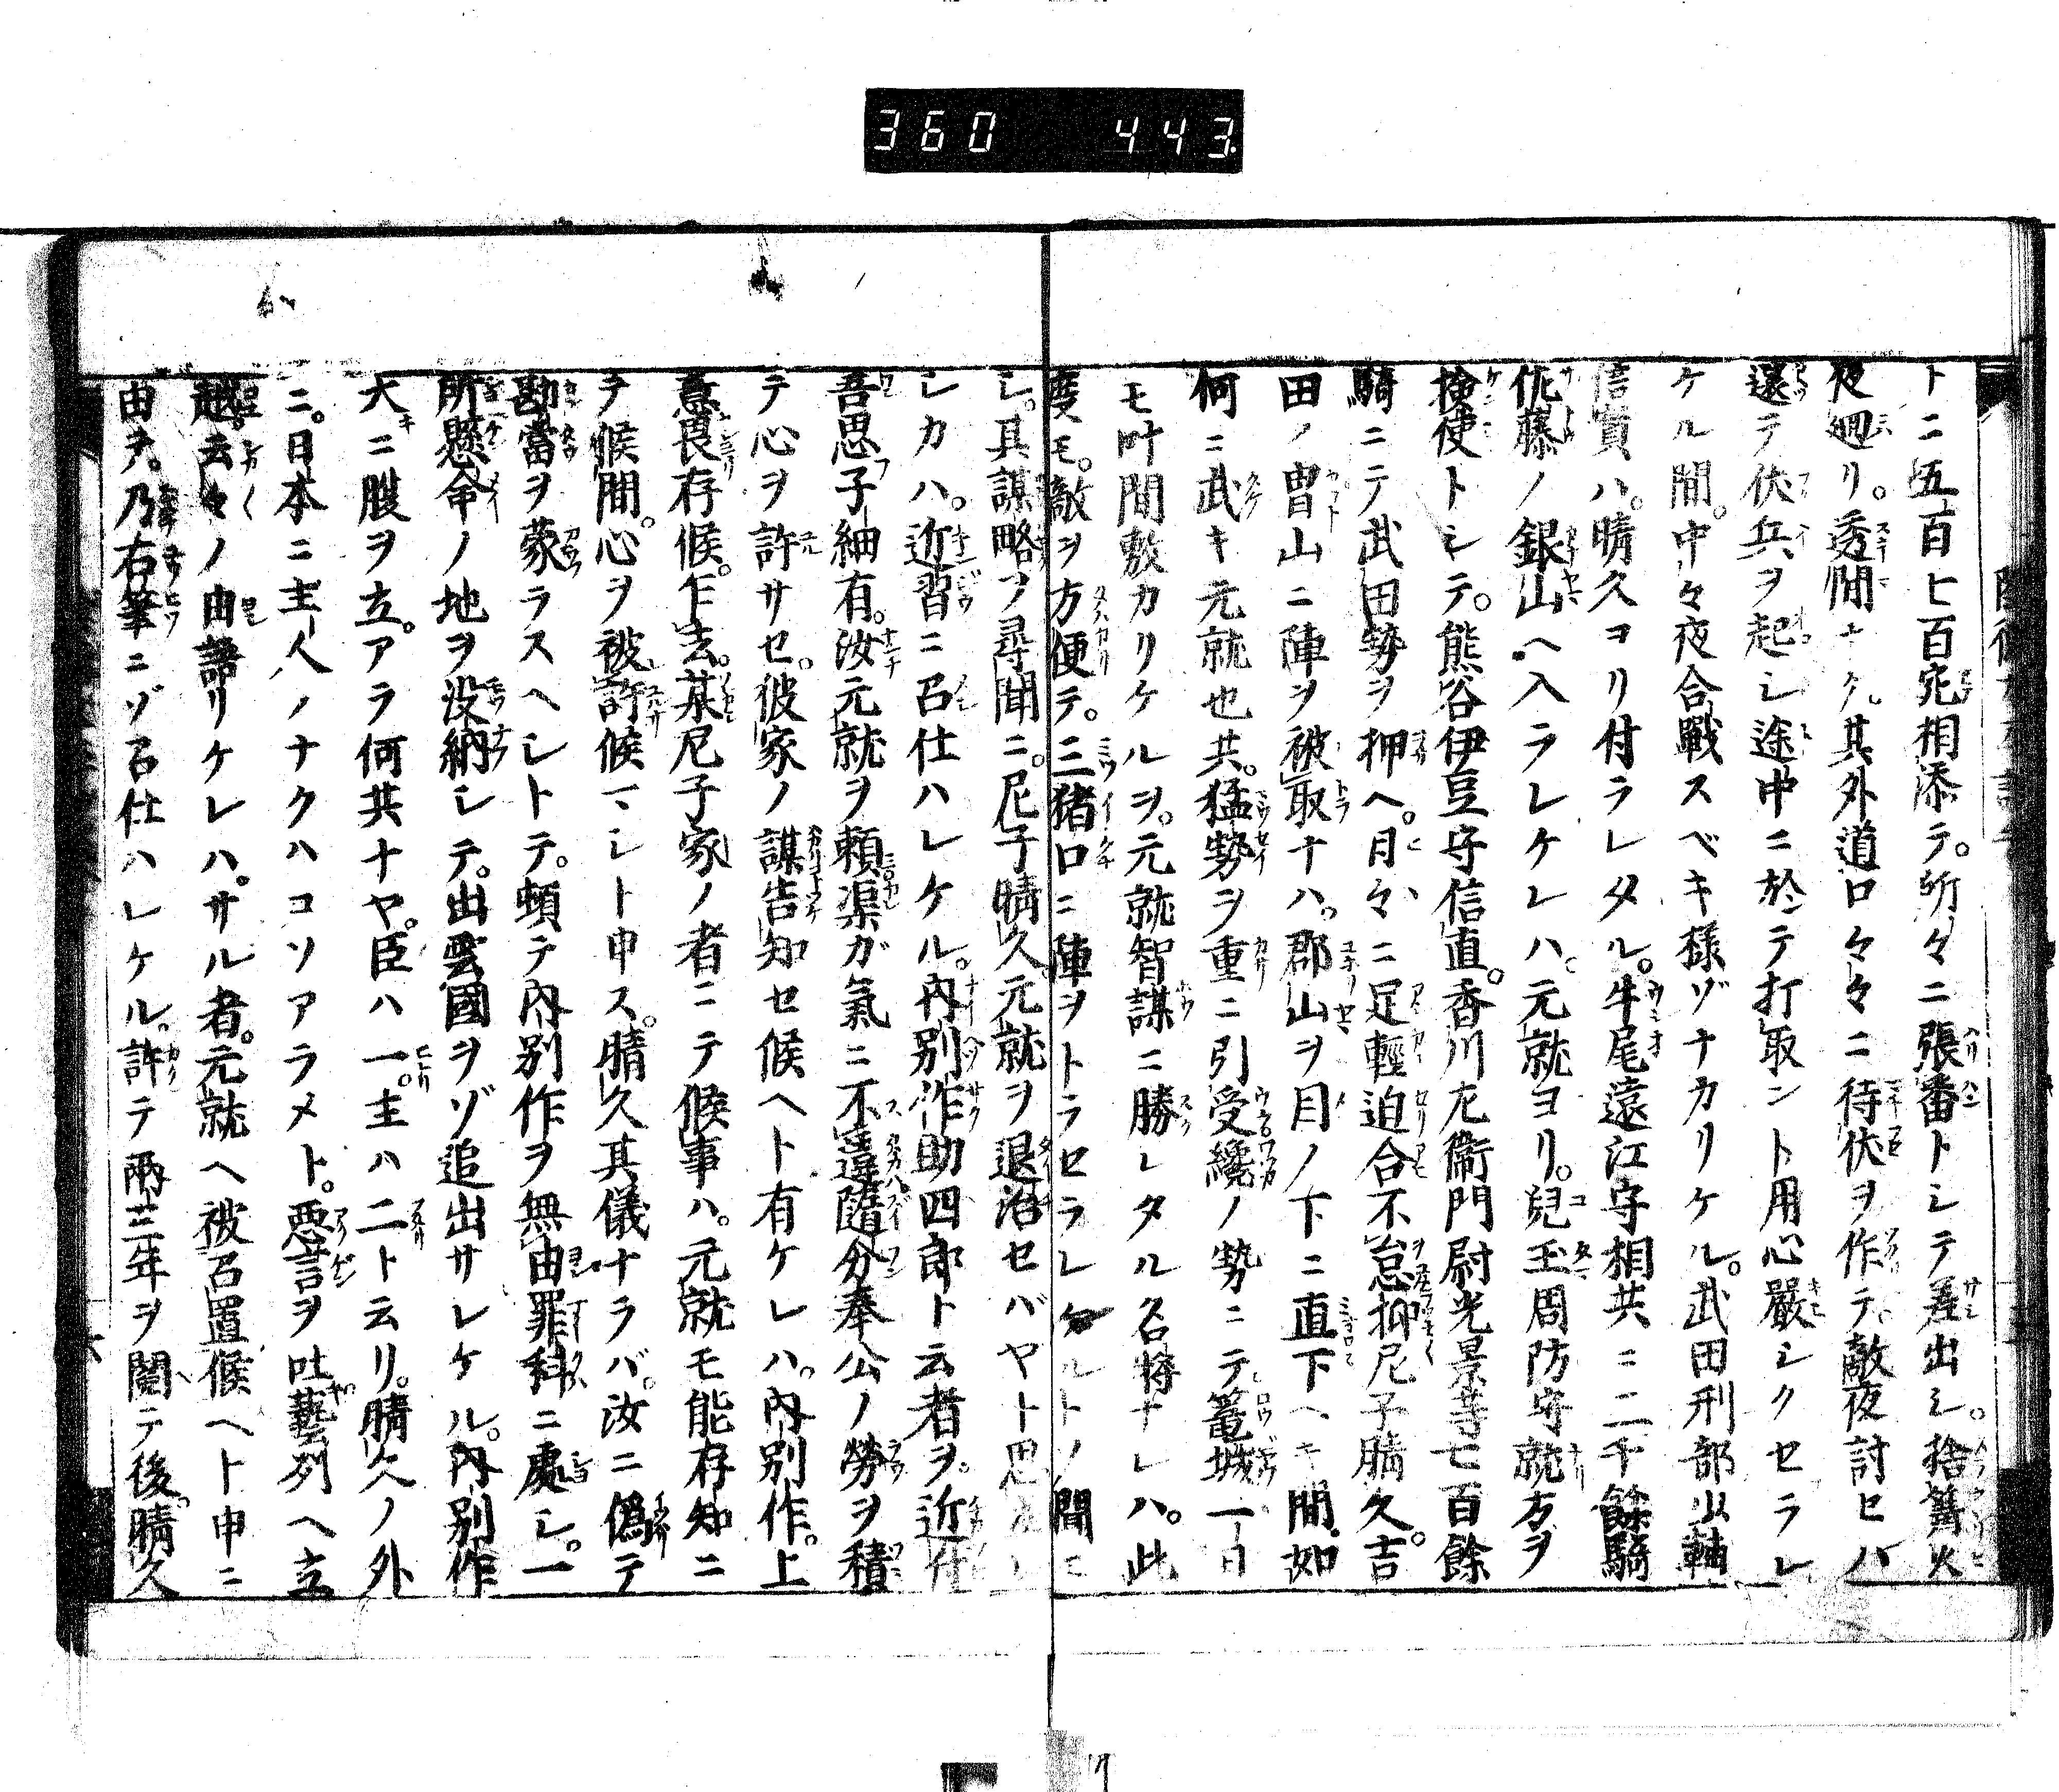 360 443
トニ五百七百宛相添テ。所々ニ張番トシテ差出シ。捨篝火
夜廻リ。透間ナク。其外道口々々ニ待伏ヲ作テ。敵夜討セハ
還テ伏兵ヲ起シ途中ニ於テ打取ント用心嚴シクセラレ
ケル間。中々夜合戰スベキ様ゾナカリケル。武田刑部少輔
信實ハ。晴久ヨリ付ラレタル。牛尾遠江守相共ニ二千餘騎
佐藤ノ銀山ヘ入ラレケレハ。元就ヨリ。兒玉周防守就方ヲ
撿使トシテ。熊谷伊豆守信直。香川左衞門尉光景等七百餘
騎ニテ武田勢ヲ押ヘ。日々ニ足輕迫合不怠抑尼子晴久。吉
田ノ冑山ニ陣ヲ被取ナハ。郡山ヲ目ノ下ニ直下ヘキ間。如
何ニ武キ元就也共。猛勢ヲ重ニ引受纔ノ勢ニテ篭城一日
モ叶間敷カリケルヲ。元就智謀ニ勝レタル名將ナレハ。此
度モ。敵ヲ方便テ。三猪口ニ陣ヲトラセラレケルトノ聞エ
シ。其謀略ヲ尋聞ニ。尼子晴久元就ヲ退治セバヤト思ハレ
シカハ。近習ニ召仕ハレケル。內別作助四郎ト云者ヲ。近付
吾思子細有。汝元就ヲ頼渠ガ氣ニ不違隨分奉公ノ勞ヲ積
テ心ヲ許サセ。彼家ノ謀告知セ候ヘト有ケレハ。內別作。上
意畏存候。乍去。某尼子家ノ者ニテ候事ハ。元就モ能存知ニ
テ候間。心ヲ被許候マシト申ス。晴久其儀ナラバ。汝ニ偽テ
勘當ヲ蒙ラスヘシトテ。頓テ內別作ヲ無由罪科ニ處シ。一
所懸命ノ地ヲ没納シテ。出雲國ヲゾ追出サレケル。內別作
大ニ腹ヲ立。アラ何共ナヤ。臣ハ一。主ハ二ト云リ。晴久ノ外
ニ。日本ニ主人ノナクハコソアラメト。悪言ヲ吐藝列ヘ立
越。云々ノ由語リケレハ。サル者。元就ヘ被召置候ヘト申ニ
由テ。乃右筆ニゾ召仕ハレケル。許テ兩三年ヲ閲テ後。晴久
六